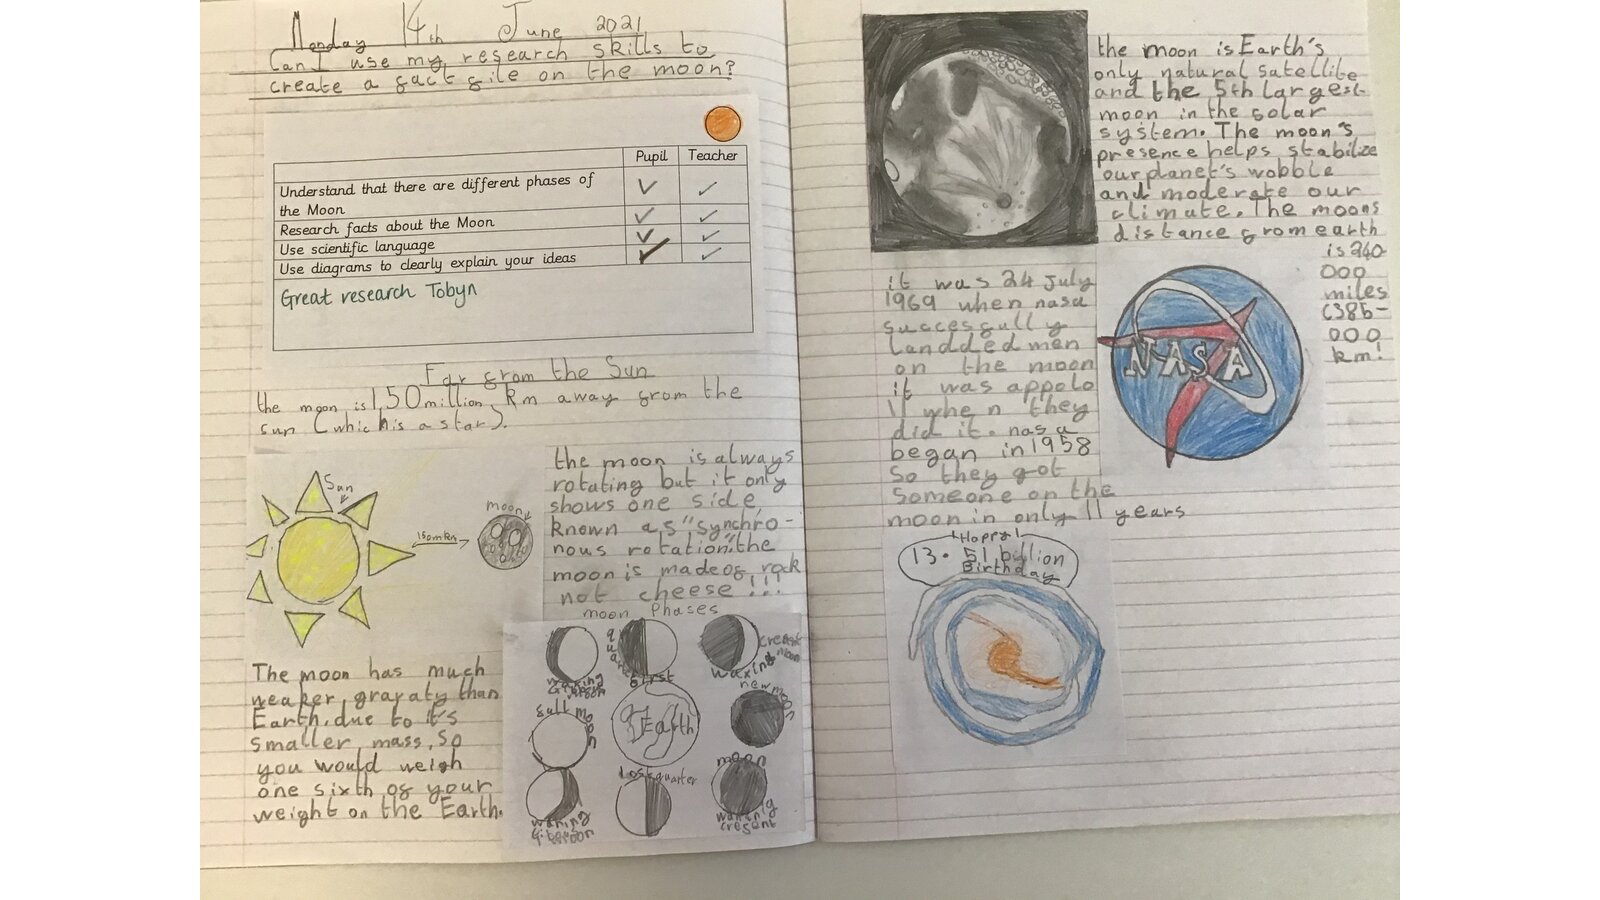 Monday 14th June 2021
Can I use my research skills to
create a fact file on the moon?
Pupil Teacher
Understand that there are different phases of
the Moon
Research facts about the Moon
Use scientific language
Use diagrams to clearly explain your ideas
Great research Tobyn
Far from the Sun
the moon is 1,50 million km away from the
sun (which is a star).
Sun
150mkm
moon
the moon is always
rotating but it only
shows one side,
known as "synchro-
nous rotation". the
moon is made of rock
not cheese!!!
The moon has much
weaker gravaty than
Earth, due to it's
smaller mass, so
you would weigh
one sixth of your
weight on the Earth.
moon Phases
waxing
moon
quarter
first
cresent
moon
waxing
new moon
full moon
Earth
moon
waning
cresent
Last quarter
waning
moon
the moon is Earth's
only natural satellite
and the 5th largest
moon in the solar
system. The moon's
presence helps stabilize
our planet's wobble
and moderate our
climate. The moons
distance from earth
is 240
000
miles
(385-
000
km!
it was 24 July
1969 when nasa
successfully
landded men
on the moon
it was appolo
11 when they
did it. nasa
began in 1958
so they got
someone on the
moon in only 11 years
NASA
Happy!
13.51 billion
Birthday